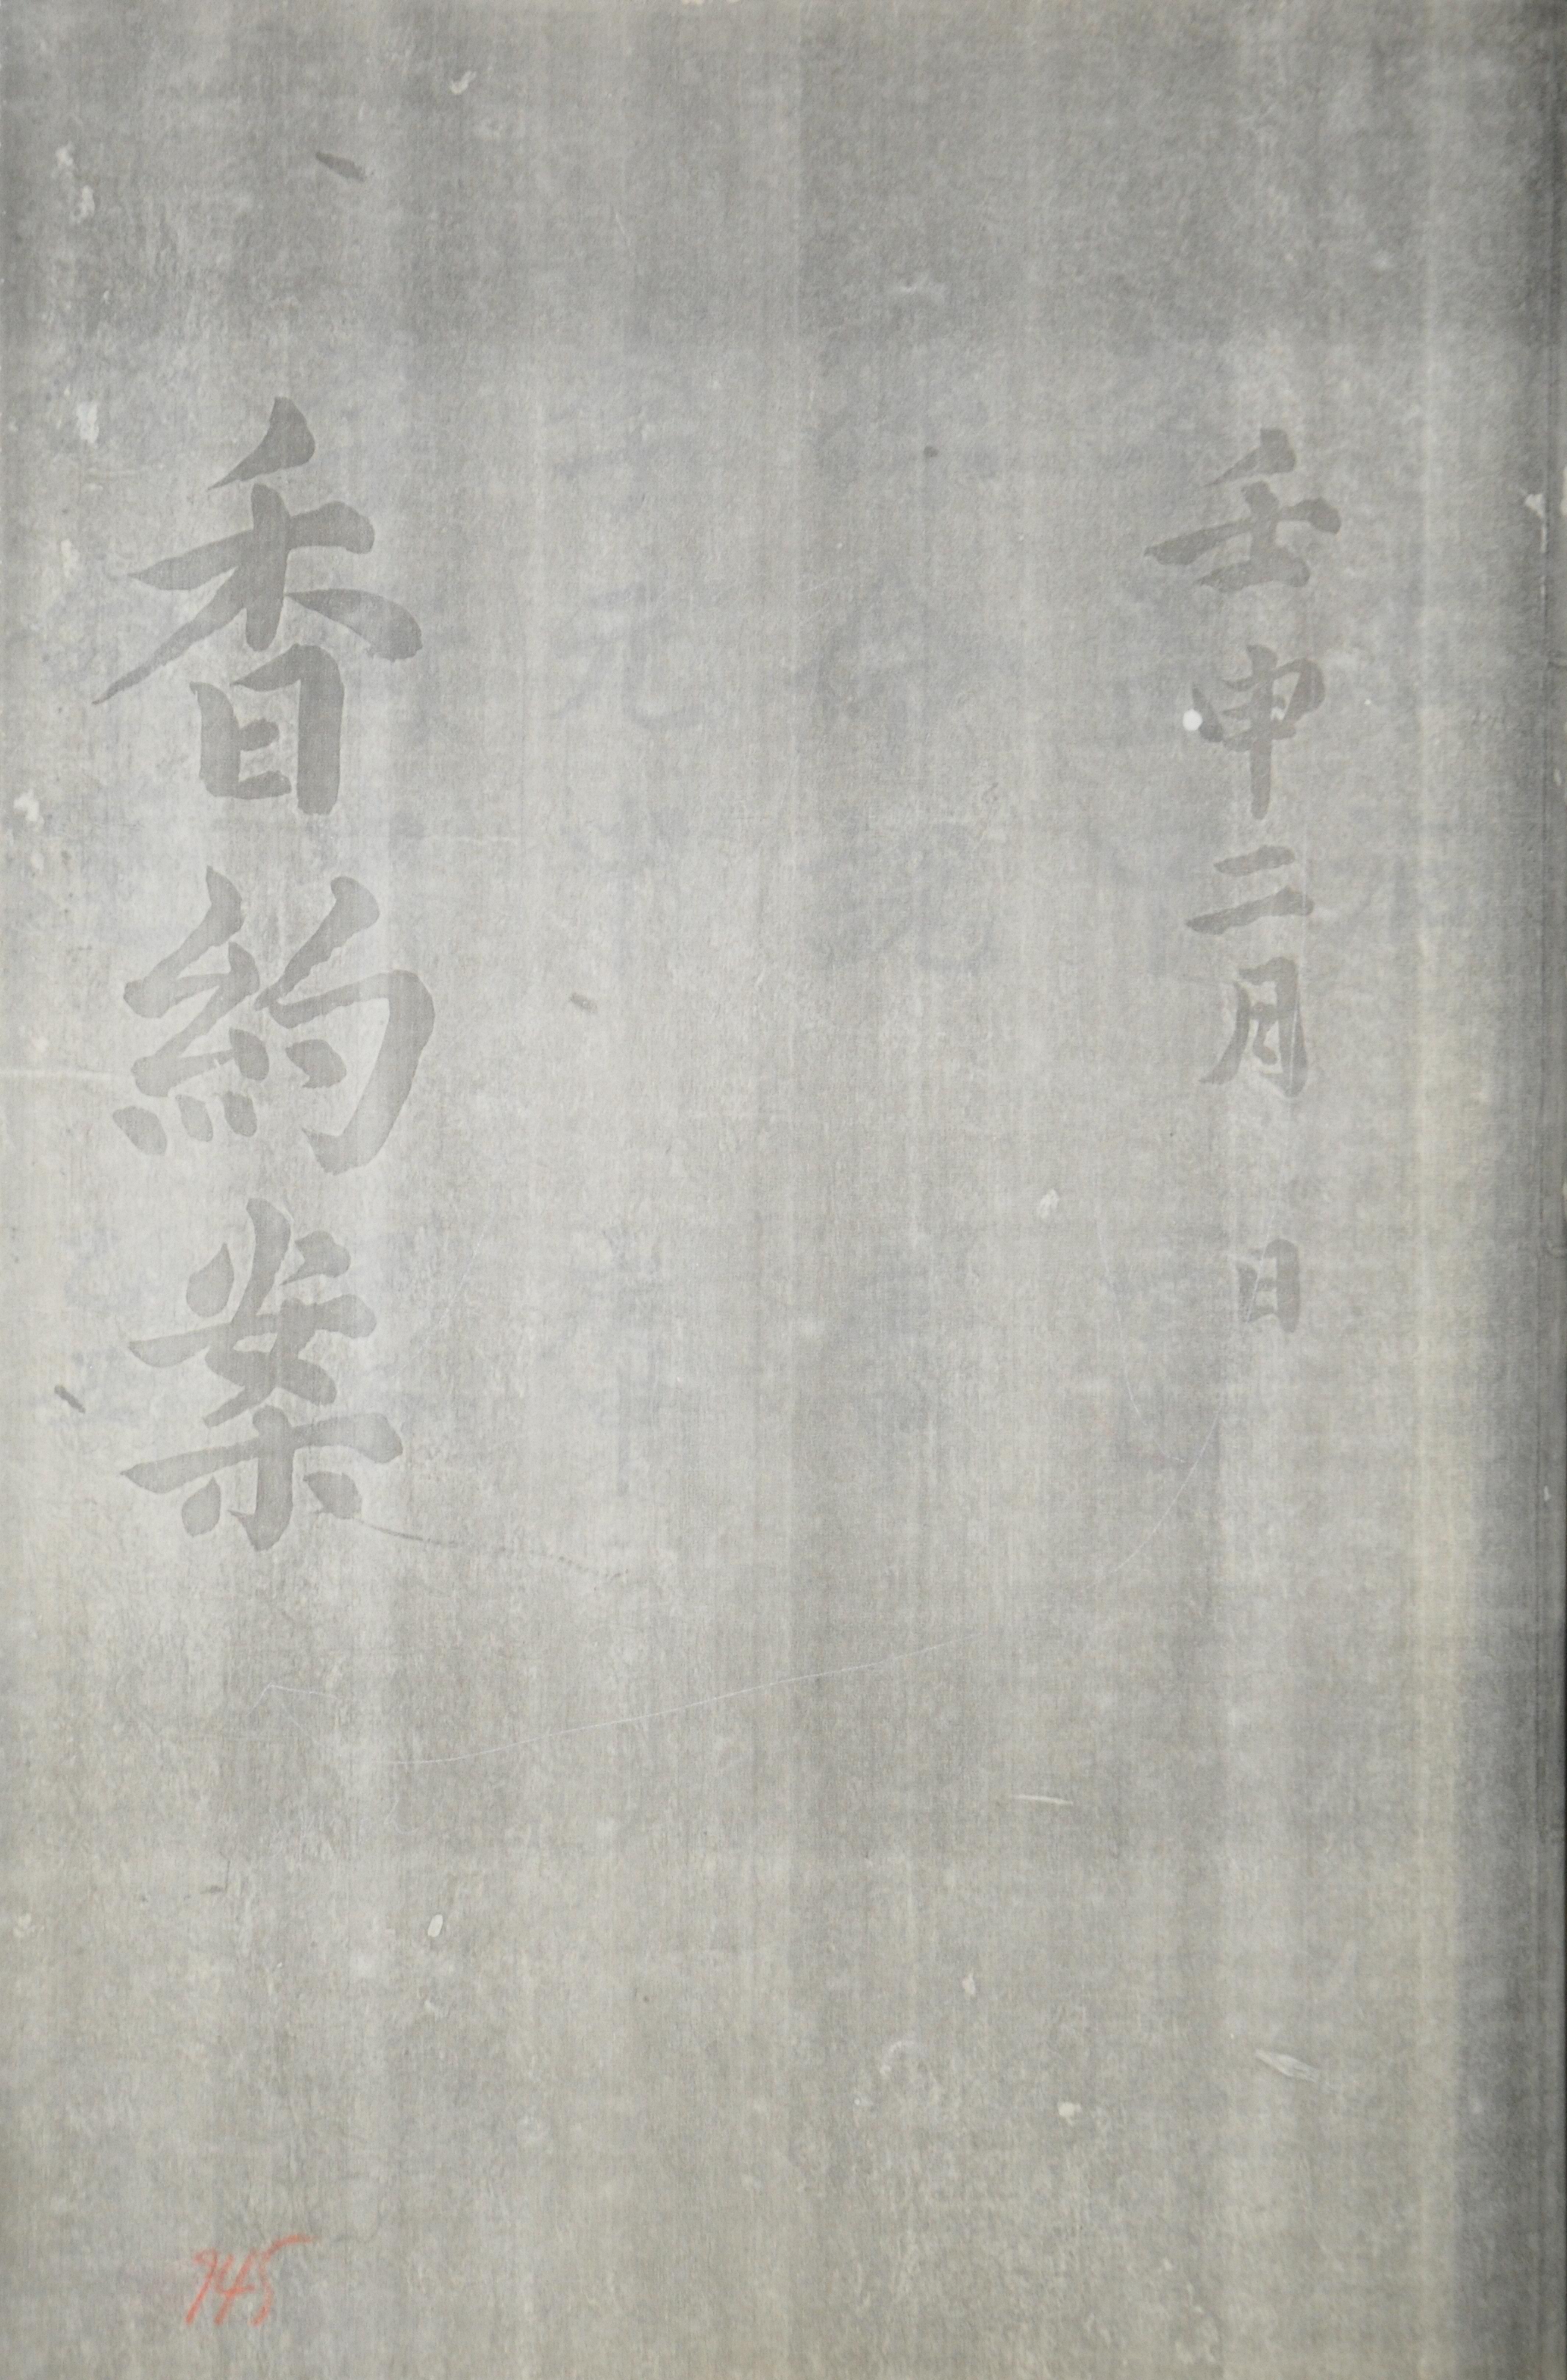 壬申二月 日
香約案
745